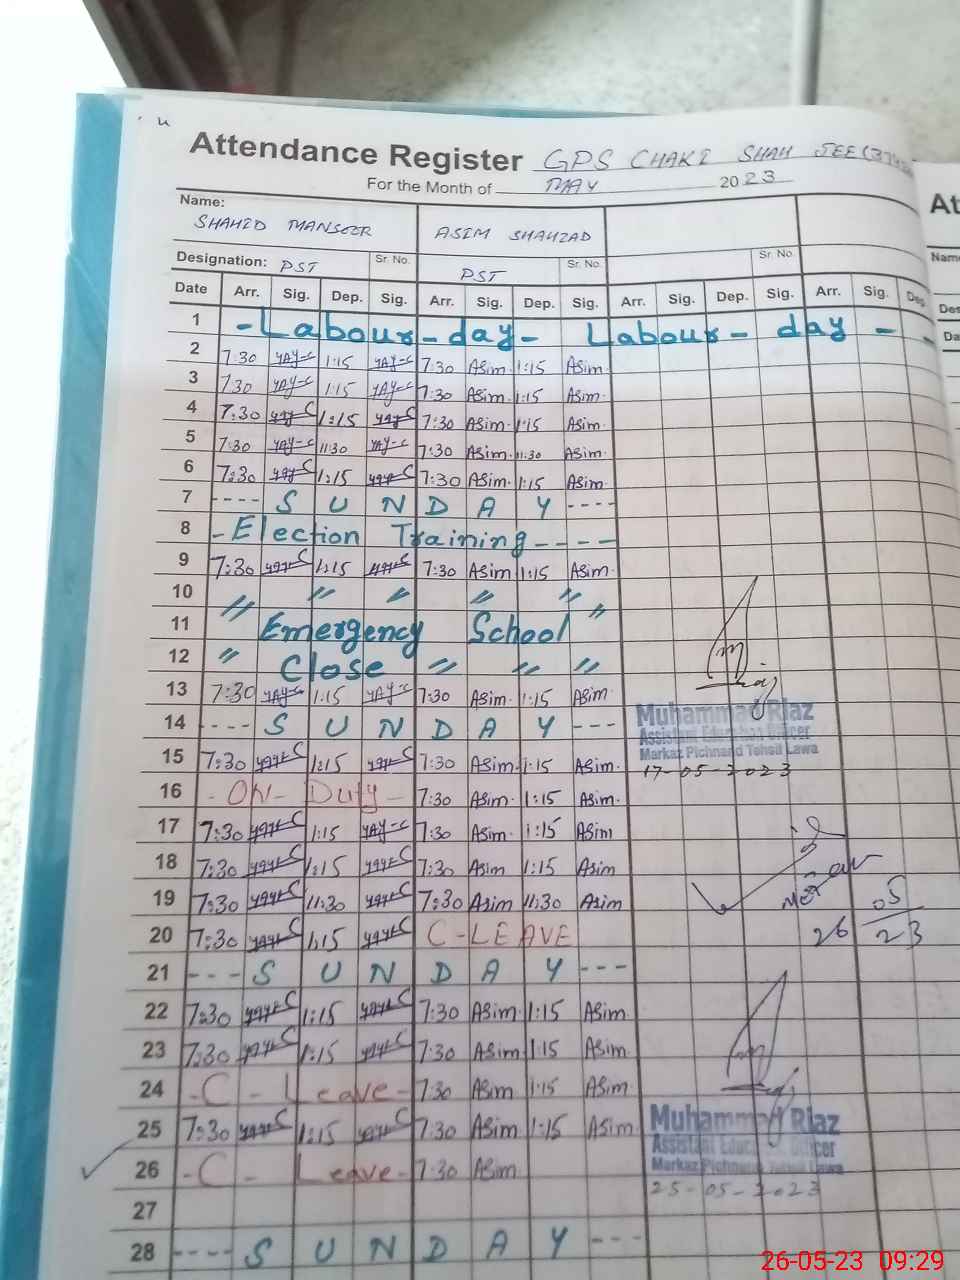 Attendance Register GPS CHAKI SHAH JEE
For the Month of MAY 2023
Name: SHAHID MANSOOR ASIM SHAHZAD
Designation: PST Sr. No. PST Sr. No. Sr. No.
Date Arr. Sig. Dep. Sig. Arr. Sig. Dep. Sig. Arr. Sig. Dep. Sig. Arr. Sig. Dep.
1 - Labour - day - Labour - day -
2 7:30 1:15 7:30 Asim 1:15 Asim
3 7:30 1:15 7:30 Asim 1:15 Asim
4 7:30 1:15 7:30 Asim 1:15 Asim
5 7:30 11:30 7:30 Asim 11:30 Asim
6 7:30 1:15 7:30 Asim 1:15 Asim
7 ---- S U N D A Y ----
8 - Election Training ----
9 7:30 1:15 7:30 Asim 1:15 Asim
10 " " " " "
11 " Emergency School "
12 " Close " " "
13 7:30 1:15 7:30 Asim 1:15 Asim
14 ---- S U N D A Y ---
15 7:30 1:15 7:30 Asim 1:15 Asim
16 - On - Duty - 7:30 Asim 1:15 Asim
17 7:30 1:15 7:30 Asim 1:15 Asim
18 7:30 1:15 7:30 Asim 1:15 Asim
19 7:30 11:30 7:30 Asim 11:30 Asim
20 7:30 1:15 C-LEAVE
21 --- S U N D A Y ---
22 7:30 1:15 7:30 Asim 1:15 Asim
23 7:30 1:15 7:30 Asim 1:15 Asim
24 - C - Leave - 7:30 Asim 1:15 Asim
25 7:30 1:15 7:30 Asim 1:15 Asim
26 - C - Leave - 7:30 Asim
27
28 ---- S U N D A Y ---
Muhammad Riaz
Assistant Education Officer
Markaz Pichnand Tehsil Lawa
17-05-2023
26 05
23
Muhammad Riaz
Assistant Education Officer
Markaz Pichnand Tehsil Lawa
25-05-2023
At
Name
Des
Da
26-05-23 09:29